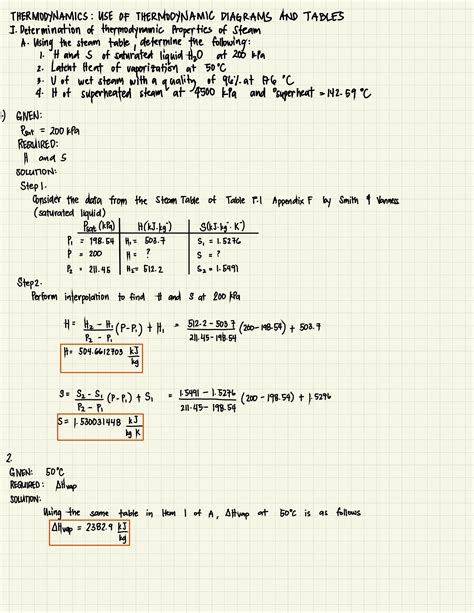 THERMODYNAMICS: USE OF THERMODYNAMIC DIAGRAMS AND TABLES
I. Determination of thermodynamic Properties of Steam
A. Using the steam table, determine the following:
1. H and S of saturated liquid H2O at 200 kPa
2. Latent Heat of vaporization at 50°C
3. U of wet steam with a quality of 96% at 176 °C
4. H of superheated steam at 4500 kPa and °superheat = 142.59 °C
1.) GIVEN:
Psat = 200 kPa
REQUIRED:
H and S
SOLUTION:
Step 1.
Consider the data from the Steam Table of Table F.1 Appendix F by Smith & Vanness
(saturated liquid)
Psat (kPa) H(kJ·kg⁻¹) S(kJ·kg⁻¹·K⁻¹)
P1 = 198.54 H1 = 503.7 S1 = 1.5276
P = 200 H = ? S = ?
P2 = 211.45 H2 = 512.2 S2 = 1.5491
Step 2.
Perform interpolation to find H and S at 200 kPa
H = H2 - H1 / P2 - P1 (P-P1) + H1 = 512.2 - 503.7 / 211.45 - 198.54 (200-198.54) + 503.7
H = 504.6612703 kJ/kg
S = S2 - S1 / P2 - P1 (P-P1) + S1 = 1.5491 - 1.5276 / 211.45 - 198.54 (200 - 198.54) + 1.5276
S = 1.530031448 kJ/kg K
2.
GIVEN: 50°C
REQUIRED: ΔHvap
SOLUTION:
Using the same table in Item 1 of A, ΔHvap at 50°C is as follows
ΔHvap = 2382.9 kJ/kg